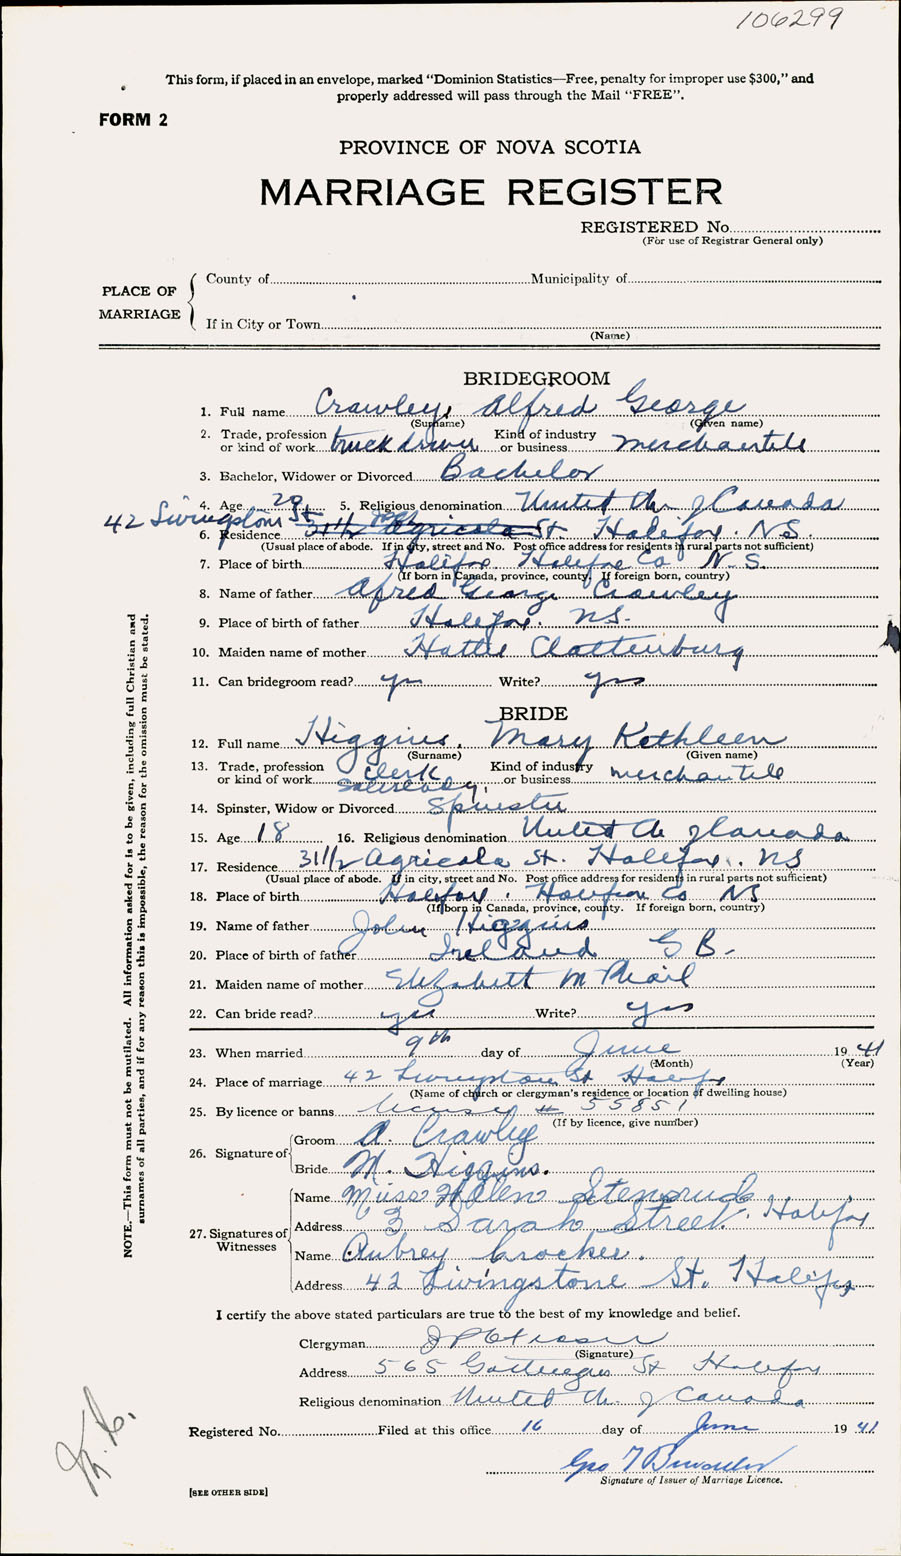 106299
This form, if placed in an envelope, marked "Dominion Statistics—Free, penalty for improper use $300," and
properly addressed will pass through the Mail "FREE".
FORM 2
PROVINCE OF NOVA SCOTIA
MARRIAGE REGISTER
REGISTERED No.
(For use of Registrar General only)
PLACE OF MARRIAGE
County of Municipality of
If in City or Town
(Name)
BRIDEGROOM
1. Full name Crawley, Alfred George
(Surname) (Given name)
2. Trade, profession or kind of work truck driver Kind of industry or business merchantile
3. Bachelor, Widower or Divorced Bachelor
4. Age 20 5. Religious denomination United Ch. of Canada
42 Livingstone St
6. Residence 311½ Agricola St. Halifax. N.S.
(Usual place of abode. If in city, street and No. Post office address for residents in rural parts not sufficient)
7. Place of birth Halifax. Halifax Co N.S.
(If born in Canada, province, county. If foreign born, country)
8. Name of father Alfred George Crawley
9. Place of birth of father Halifax. NS.
10. Maiden name of mother Hattie Clattenburg
11. Can bridegroom read? yes Write? yes
BRIDE
12. Full name Higgins, Mary Kathleen
(Surname) (Given name)
13. Trade, profession or kind of work clerk Kind of industry or business merchantile
14. Spinster, Widow or Divorced Spinster
15. Age 18 16. Religious denomination United Ch of Canada
17. Residence 311½ Agricola St. Halifax. NS
(Usual place of abode. If in city, street and No. Post office address for residents in rural parts not sufficient)
18. Place of birth Halifax. Halifax Co NS
(If born in Canada, province, county. If foreign born, country)
19. Name of father John Higgins
20. Place of birth of father Ireland G B.
21. Maiden name of mother Elizabeth McPhail
22. Can bride read? yes Write? yes
23. When married 9th day of June 1941
(Month) (Year)
24. Place of marriage 42 Livingstone St Halifax
(Name of church or clergyman's residence or location of dwelling house)
25. By licence or banns license # 55851
(If by licence, give number)
26. Signature of Groom A. Crawley
Bride M. Higgins.
27. Signatures of Witnesses
Name Miss Helen Stensrud
Address 3 Sarah Street. Halifax
Name Aubrey Crocker.
Address 42 Livingstone St. Halifax
I certify the above stated particulars are true to the best of my knowledge and belief.
Clergyman
(Signature)
Address 565 Gottingen St Halifax
Religious denomination United Ch. of Canada
Registered No. Filed at this office 16 day of June 1941
Geo T
Signature of Issuer of Marriage Licence.
[SEE OTHER SIDE]
NOTE.—This form must not be mutilated. All information asked for is to be given, including full Christian and
surnames of all parties, and if for any reason this is impossible, the reason for the omission must be stated.